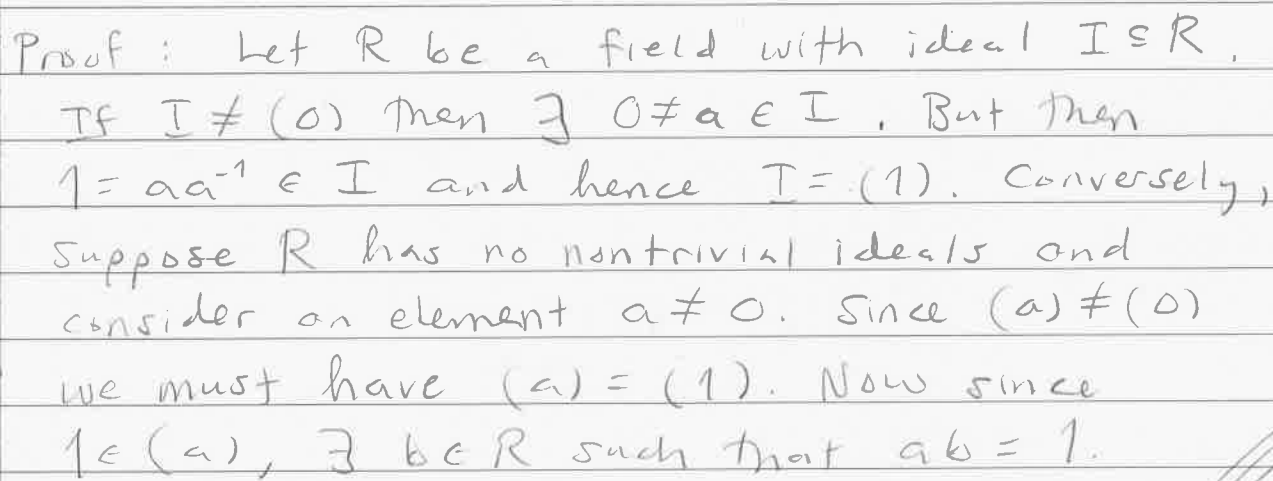 Proof : Let R be a field with ideal I ⊆ R.
If I ≠ (0) then ∃ 0 ≠ a ∈ I. But then
1 = aa⁻¹ ∈ I and hence I = (1). Conversely,
suppose R has no nontrivial ideals and
consider an element a ≠ 0. Since (a) ≠ (0)
we must have (a) = (1). Now since
1 ∈ (a), ∃ b ∈ R such that ab = 1.